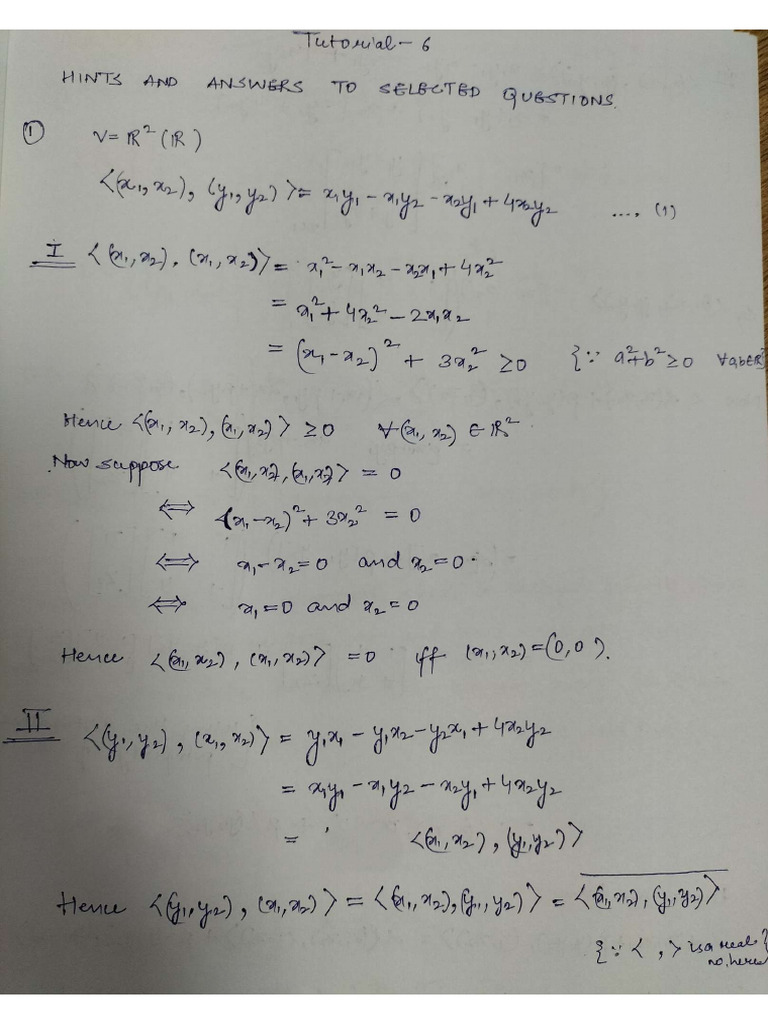 Tutorial - 6
HINTS AND ANSWERS TO SELECTED QUESTIONS.
① V = ℝ² (ℝ)
<(x₁, x₂), (y₁, y₂)> = x₁y₁ - x₁y₂ - x₂y₁ + 4x₂y₂ ...., (1)
I <(x₁, x₂), (x₁, x₂)> = x₁² - x₁x₂ - x₂x₁ + 4x₂²
= x₁² + 4x₂² - 2x₁x₂
= (x₁ - x₂)² + 3x₂² ≥ 0 {∵ a² + b² ≥ 0 ∀ a, b ∈ ℝ}
Hence <(x₁, x₂), (x₁, x₂)> ≥ 0 ∀ (x₁, x₂) ∈ ℝ²
Now suppose <(x₁, x₂), (x₁, x₂)> = 0
⟺ (x₁ - x₂)² + 3x₂² = 0
⟺ x₁ - x₂ = 0 and x₂ = 0.
⟺ x₁ = 0 and x₂ = 0
Hence <(x₁, x₂), (x₁, x₂)> = 0 iff (x₁, x₂) = (0, 0).
II <(y₁, y₂), (x₁, x₂)> = y₁x₁ - y₁x₂ - y₂x₁ + 4x₂y₂
= x₁y₁ - x₁y₂ - x₂y₁ + 4x₂y₂
= <(x₁, x₂), (y₁, y₂)>
Hence <(y₁, y₂), (x₁, x₂)> = <(x₁, x₂), (y₁, y₂)> = \overline{<(x₁, x₂), (y₁, y₂)>}
{∵ < , > is a real
no. here}